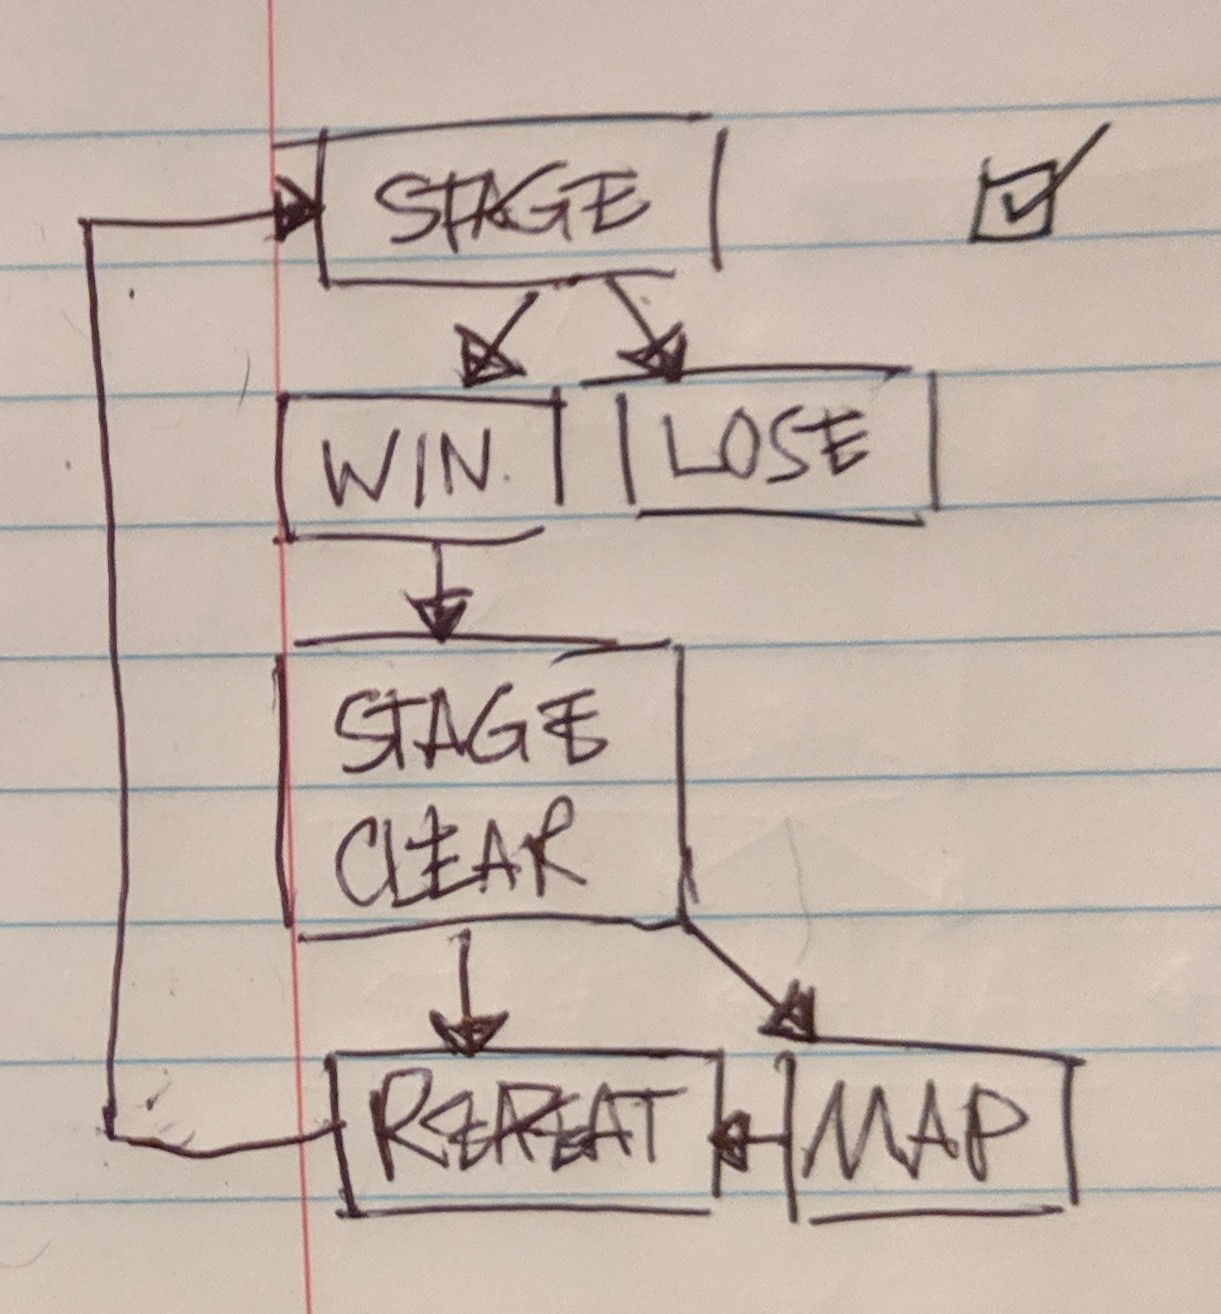 STAGE
WIN. LOSE
STAGE
CLEAR
REPEAT MAP